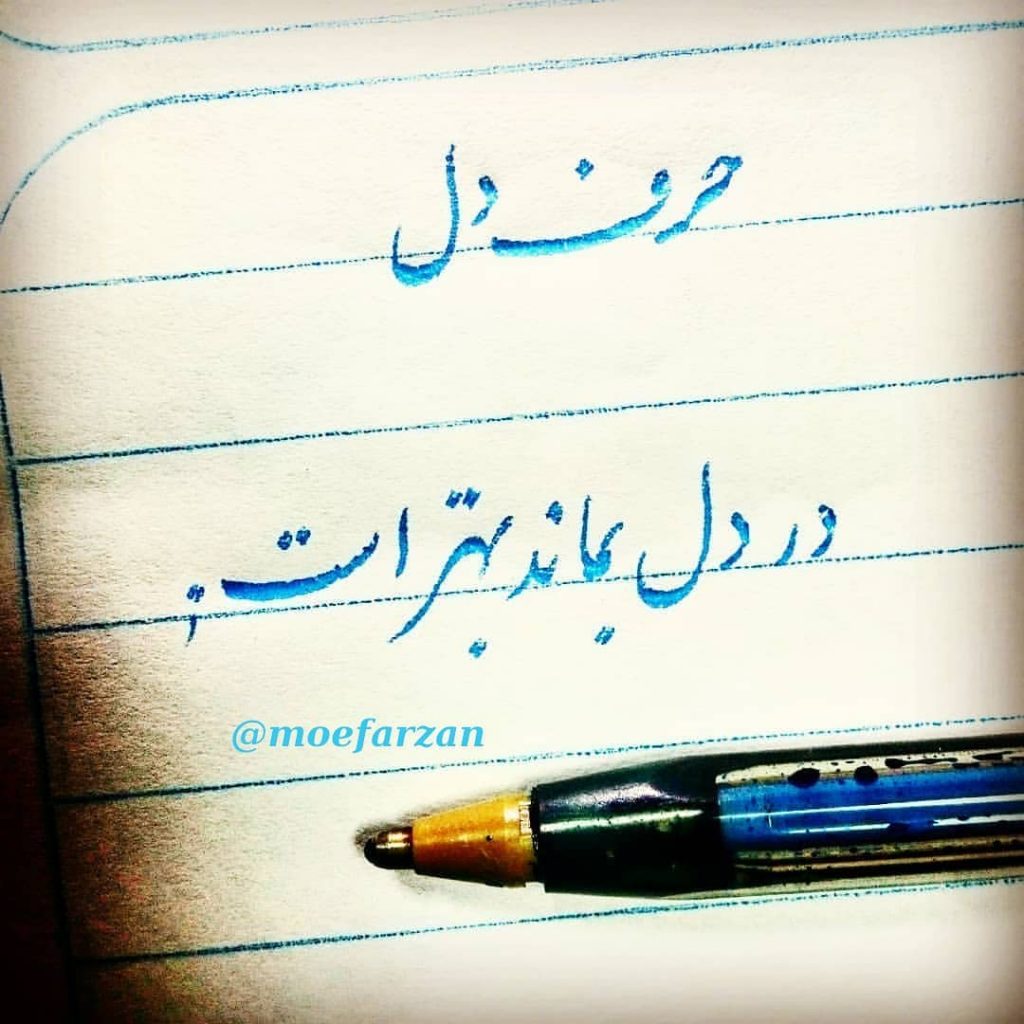 حرف دل
در دل بماند بهتر است
@moefarzan